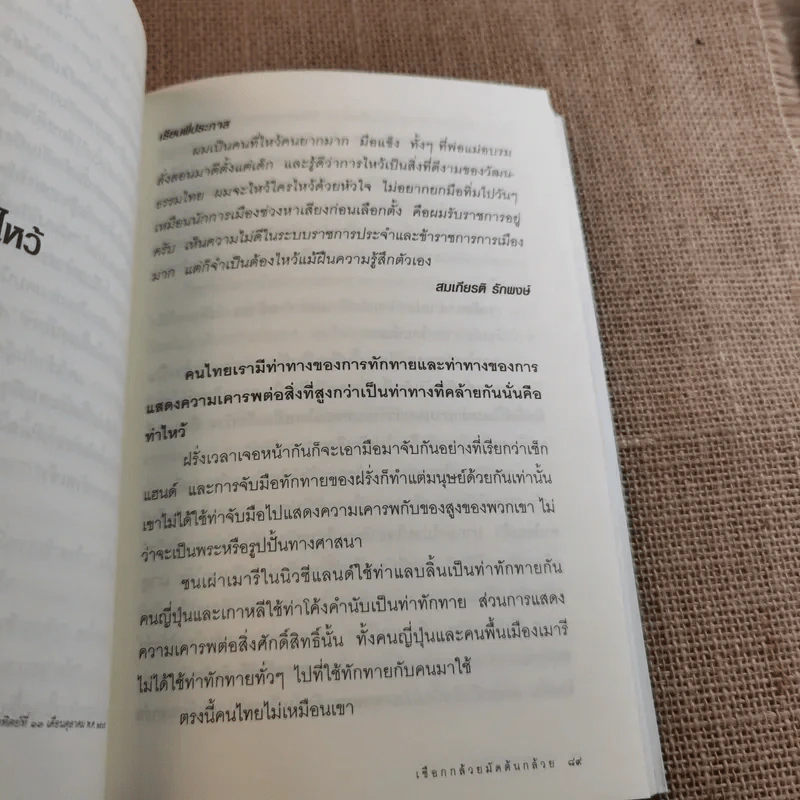 ไหว้
เรียนพี่ประภาส
ผมเป็นคนที่ไหว้คนยากมาก มือแข็ง ทั้งๆ ที่พ่อแม่อบรม
สั่งสอนมาดีตั้งแต่เด็ก และรู้ดีว่าการไหว้เป็นสิ่งที่ดีงามของวัฒน-
ธรรมไทย ผมจะไหว้ใครไหว้ด้วยหัวใจ ไม่อยากยกมือทิ่มไปวันๆ
เหมือนนักการเมืองช่วงหาเสียงก่อนเลือกตั้ง คือผมรับราชการอยู่
ครับ เห็นความไม่ดีในระบบราชการประจำและข้าราชการการเมือง
มาก แต่ก็จำเป็นต้องไหว้แม้ฝืนความรู้สึกตัวเอง
สมเกียรติ รักพงษ์
คนไทยเรามีท่าทางของการทักทายและท่าทางของการ
แสดงความเคารพต่อสิ่งที่สูงกว่าเป็นท่าทางที่คล้ายกันนั่นคือ
ท่าไหว้
ฝรั่งเวลาเจอหน้ากันก็จะเอามือมาจับกันอย่างที่เรียกว่าเช็ก
แฮนด์ และการจับมือทักทายของฝรั่งก็ทำแต่มนุษย์ด้วยกันเท่านั้น
เขาไม่ได้ใช้ท่าจับมือไปแสดงความเคารพกับของสูงของพวกเขา ไม่
ว่าจะเป็นพระหรือรูปปั้นทางศาสนา
ชนเผ่าเมารีในนิวซีแลนด์ใช้ท่าแลบลิ้นเป็นท่าทักทายกัน
คนญี่ปุ่นและเกาหลีใช้ท่าโค้งคำนับเป็นท่าทักทาย ส่วนการแสดง
ความเคารพต่อสิ่งศักดิ์สิทธิ์นั้น ทั้งคนญี่ปุ่นและคนพื้นเมืองเมารี
ไม่ได้ใช้ท่าทักทายทั่วๆ ไปที่ใช้ทักทายกับคนมาใช้
ตรงนี้คนไทยไม่เหมือนเขา
ทิตย์ที่ ๑๓ เดือนตุลาคม
เชือกกล้วยมัดต้นกล้วย ๘๙